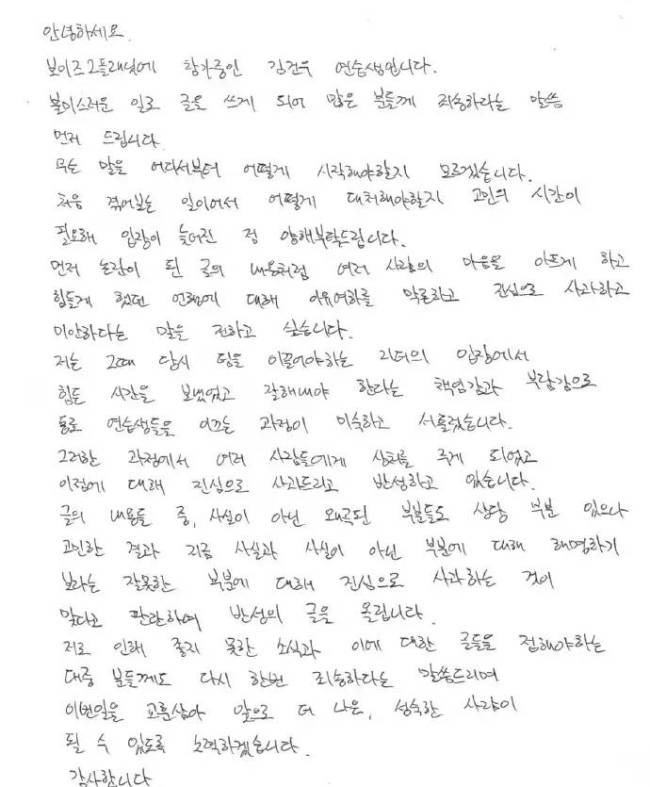 안녕하세요.
보이즈2플래닛에 참가중인 김건우 연습생입니다.
불미스러운 일로 글을 쓰게 되어 많은 분들께 죄송하다는 말씀
먼저 드립니다.
무슨 말을 어디서부터 어떻게 시작해야할지 모르겠습니다.
처음 겪어보는 일이어서 어떻게 대처해야할지 고민의 시간이
필요해 입장이 늦어진 점 양해부탁드립니다.
먼저 논란이 된 글의 내용처럼 여러 사람의 마음을 아프게 하고
힘들게 했던 언행에 대해 이유여하를 막론하고 진심으로 사과하고
미안하다는 말을 전하고 싶습니다.
저는 그때 당시 팀을 이끌어야하는 리더의 입장에서
힘든 시간을 보냈었고 잘해내야 한다는 책임감과 부담감으로
동료 연습생들을 이끄는 과정이 미숙하고 서툴렀습니다.
그러한 과정에서 여러 사람들에게 상처를 주게 되었고
이점에 대해 진심으로 사과드리고 반성하고 있습니다.
글의 내용들 중, 사실이 아닌 왜곡된 부분들도 상당 부분 있으나
고민한 결과 지금 사실과 사실이 아닌 부분에 대해 해명하기
보다는 잘못한 부분에 대해 진심으로 사과하는 것이
맞다고 판단하여 반성의 글을 올립니다.
저로 인해 좋지 못한 소식과 이에 대한 글들을 접해야하는
대중 분들께도 다시 한번 죄송하다는 말씀드리며
이번일을 교훈삼아 앞으로 더 나은, 성숙한 사람이
될 수 있도록 노력하겠습니다.
감사합니다